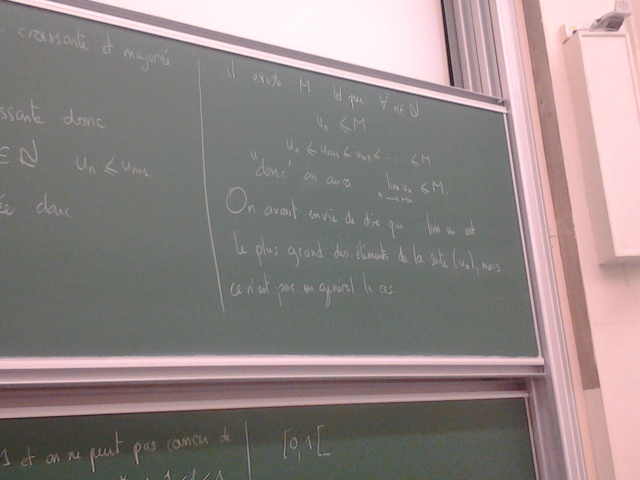 croissante et majorée
ssante donc
∈ ℕ u_n ≤ u_n+1
ée donc
il existe M tel que ∀ n∈ℕ
u_n ≤ M
u_n ≤ u_n+1 ≤ u_n+2 ≤ ..... ≤ M
"donc" on aura lim u_n ≤ M.
n→+∞
On avait envie de dire que lim u_n est
le plus grand des éléments de la suite (u_n), mais
ce n'est pas en général le cas.
1 et on ne peut pas de
[0,1[